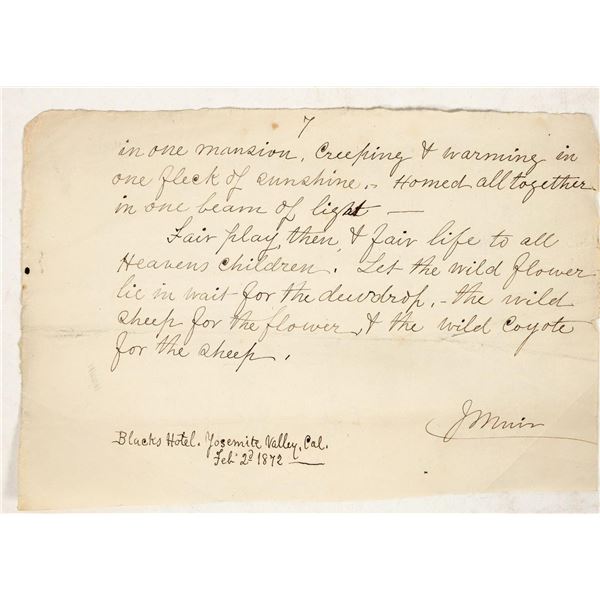 7
in one mansion, Creeping & warming in
one fleck of sunshine. - Homed all together
in one beam of light —
Fair play, then, & fair life to all
Heavens children. Let the wild flower
lie in wait for the dewdrop, - the wild
sheep for the flower, & the wild Coyote
for the sheep.
J Muir
Blacks Hotel. Yosemite Valley, Cal.
Feb 2d 1872 —